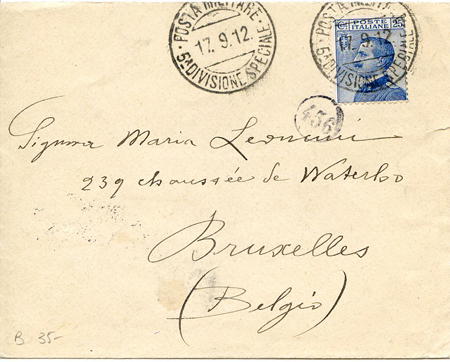 POSTA MILITARE
17.9.12.
5ª DIVISIONE SPECIALE
POSTE
ITALIANE
25
17.9.12
5ª DIVISIONE SPECIALE
436
Signora Maria
239 chaussée de Waterloo
Bruxelles
(Belgio)
B. 35-